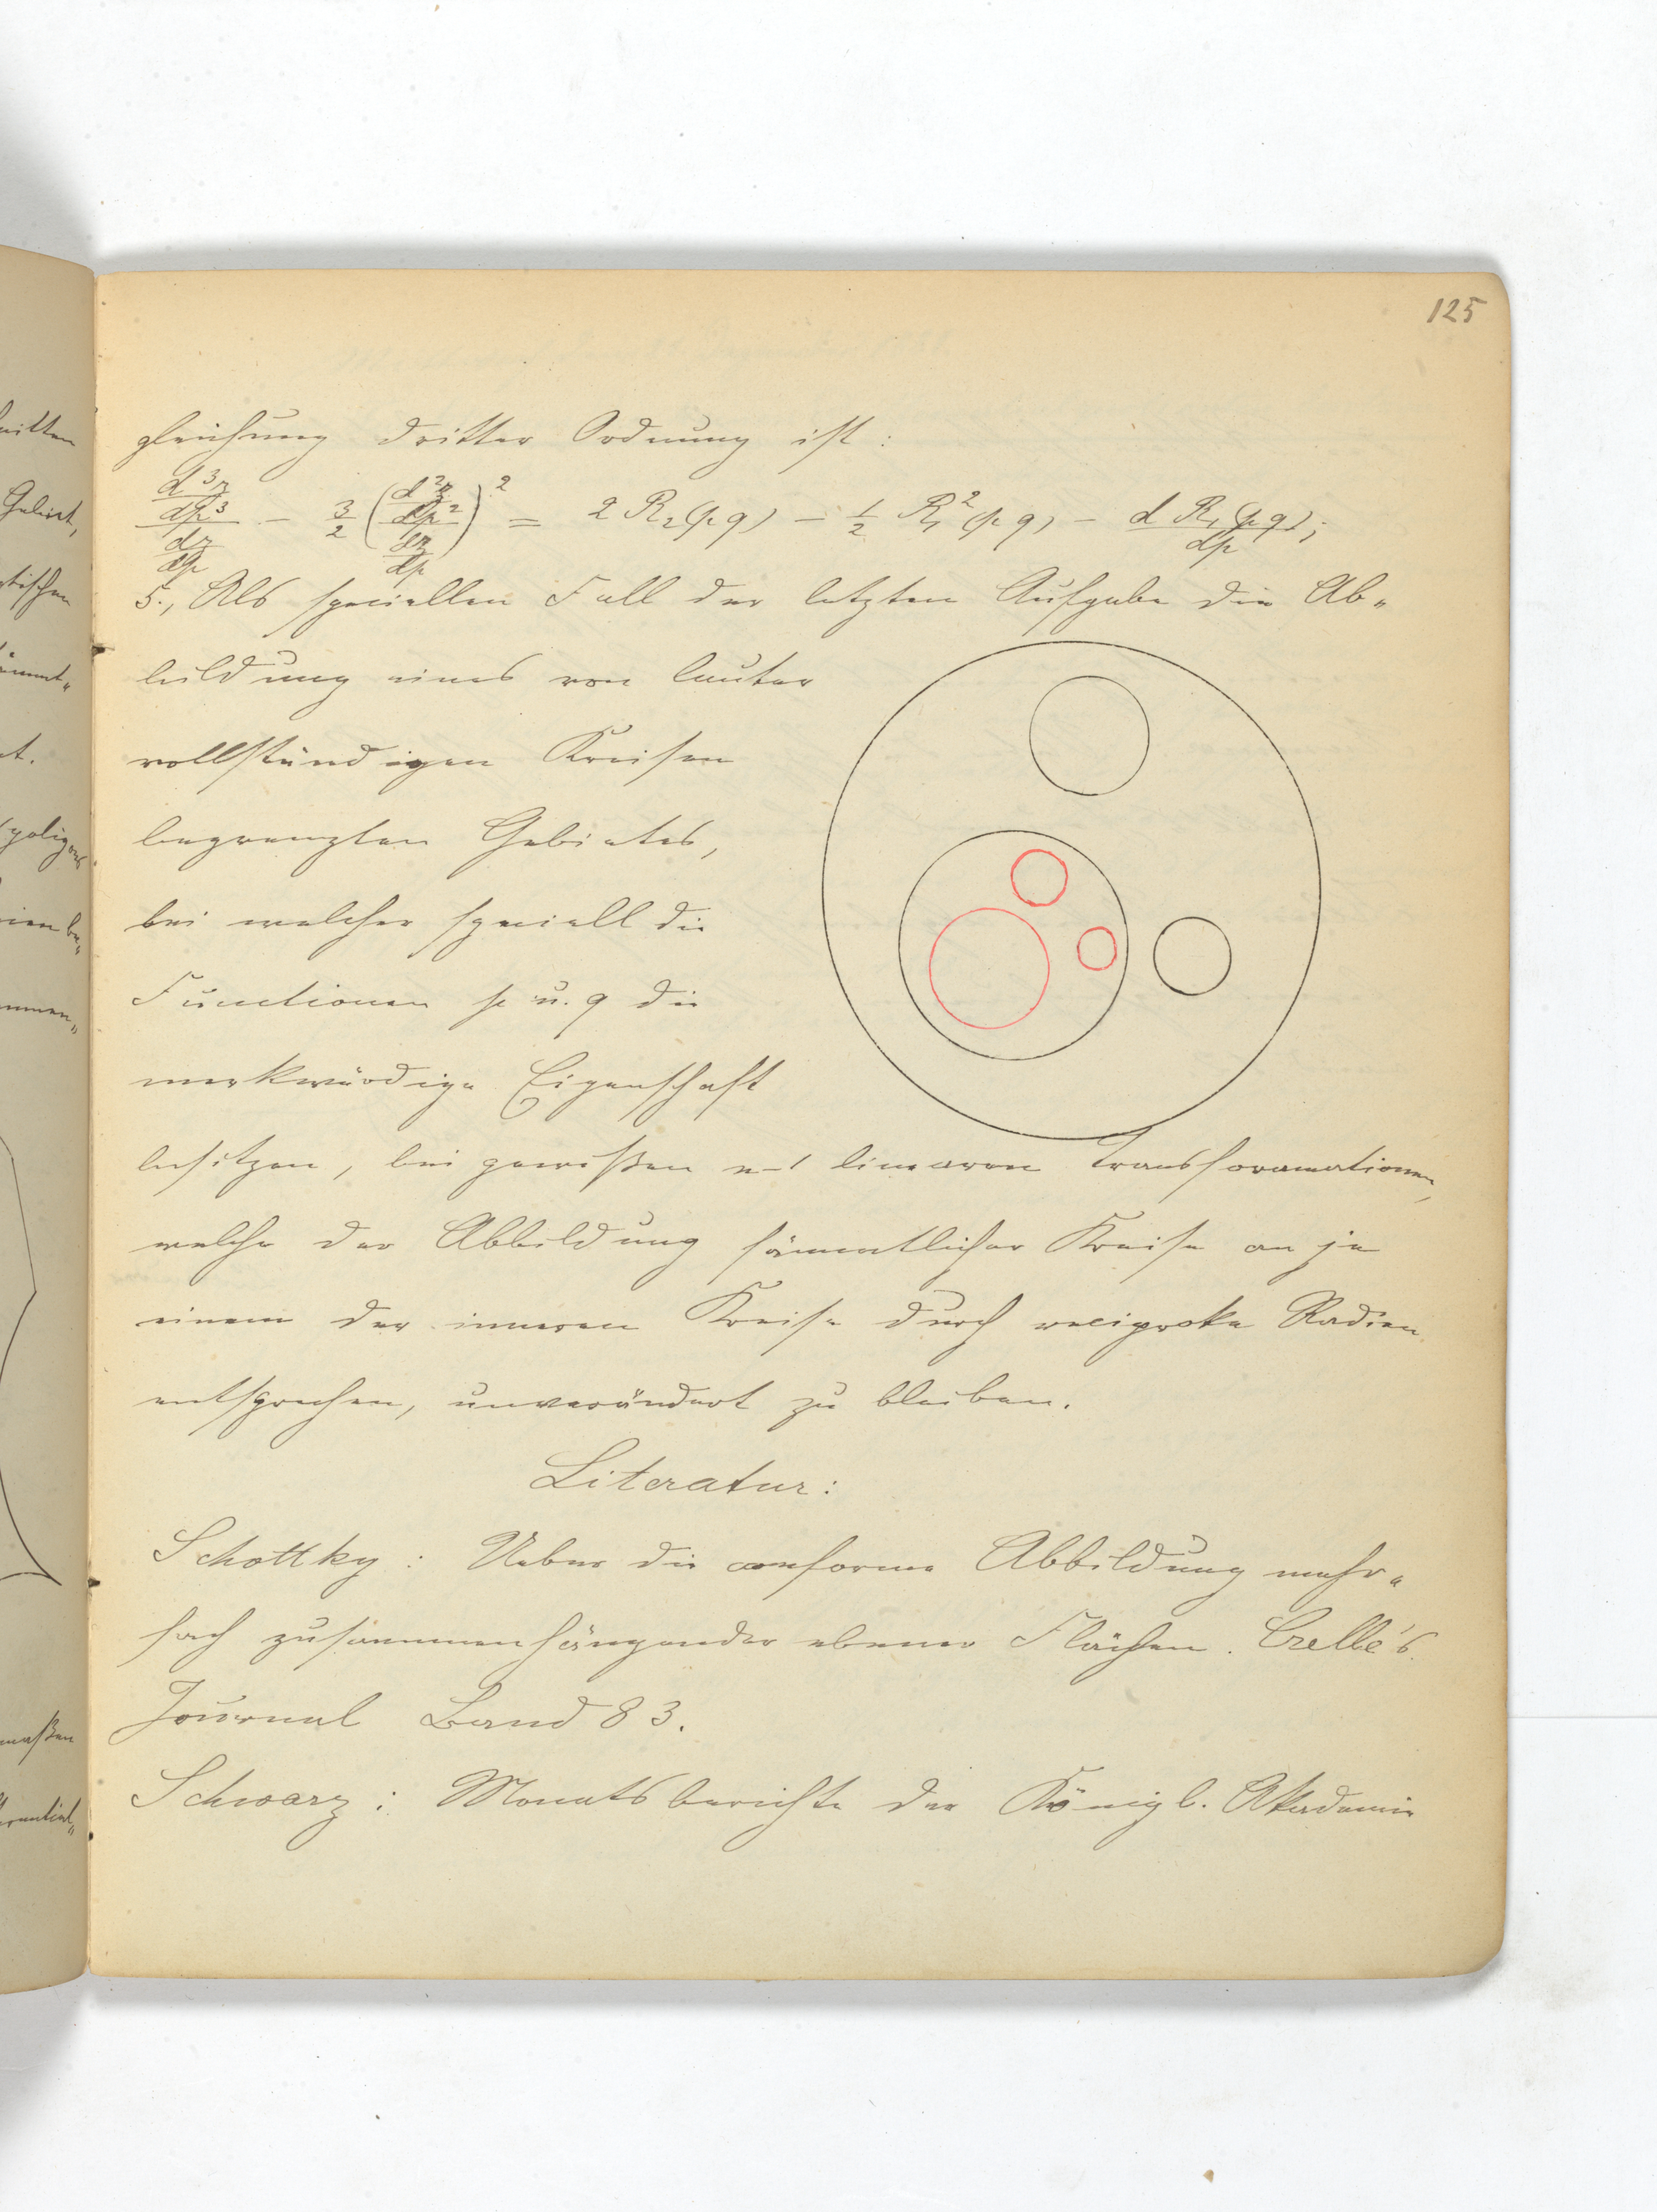 125
gleichung dritter Ordnung ist:
\frac{\frac{d^3z}{dp^3}}{\frac{dz}{dp}} - \frac{3}{2} \left(\frac{\frac{d^2z}{dp^2}}{\frac{dz}{dp}}\right)^2 = 2 R_2(p q) - \frac{1}{2} R_1^2(p q) - \frac{d R_1(p q)}{dp};
5., Als speciellen Fall der letzten Aufgabe die Ab„
bildung eines von lauter
vollständigen Kreisen
begrenzten Gebietes,
bei welcher speciell die
Functionen p u. q die
merkwürdige Eigenschaft
besitzen, bei gewißen n-1 linearen Transformationen,
welche der Abbildung sämmtlicher Kreise an je
einem der inneren Kreise durch reciproke Radien
entsprechen, unverändert zu bleiben.
Literatur:
Schottky: Ueber die conforme Abbildung mehr„
fach zusammenhängender ebener Flächen. Crelle's
Journal Band 83.
Schwarz: Monatsberichte der Königl. Akademie